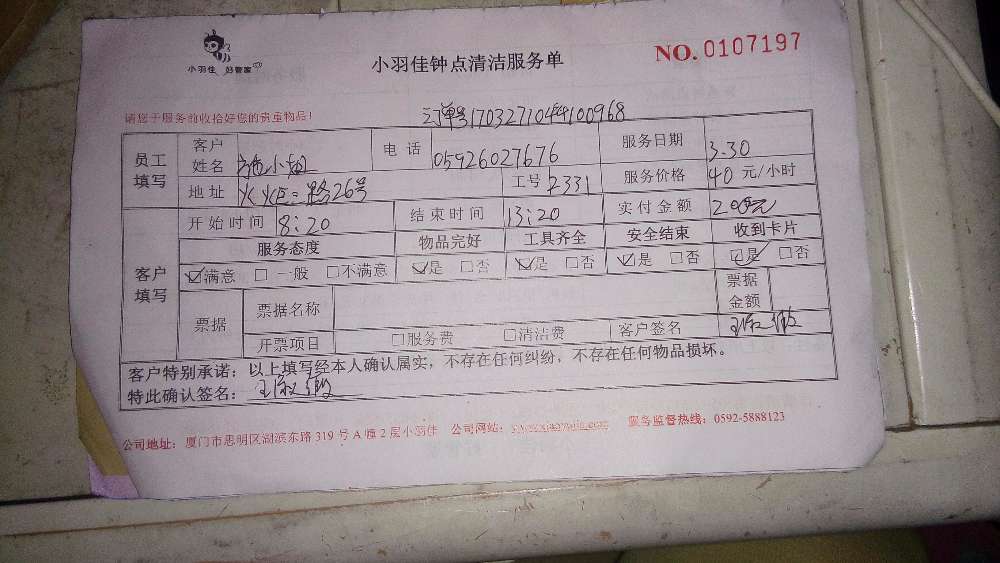 小羽佳 好管家
小羽佳钟点清洁服务单
NO. 0107197
请您于服务前收拾好您的贵重物品!
订单号
员工填写
客户姓名 施小姐 电话 05926027676 服务日期 3.30
地址 火炬二路26号 工号 2331 服务价格 40 元/小时
客户填写
开始时间 8:20 结束时间 13:20 实付金额 200元
服务态度 物品完好 工具齐全 安全结束 收到卡片
☑满意 □ 一般 □不满意 ☑是 □否 ☑是 □否 ☑是 □否 ☑是 □否
票据 票据名称 票据金额
开票项目 □服务费 □清洁费 客户签名
客户特别承诺:以上填写经本人确认属实,不存在任何纠纷,不存在任何物品损坏。
特此确认签名:
公司地址:厦门市思明区湖滨东路 319 号 A 幢 2 层小羽佳 公司网站: 服务监督热线:0592-5888123